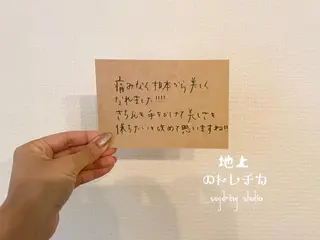 痛みなく根本から美しく
なれました!!!!
きちんと手をかけて美しさを
保ちたいと改めて思いますね!!
地上
のドレナカ